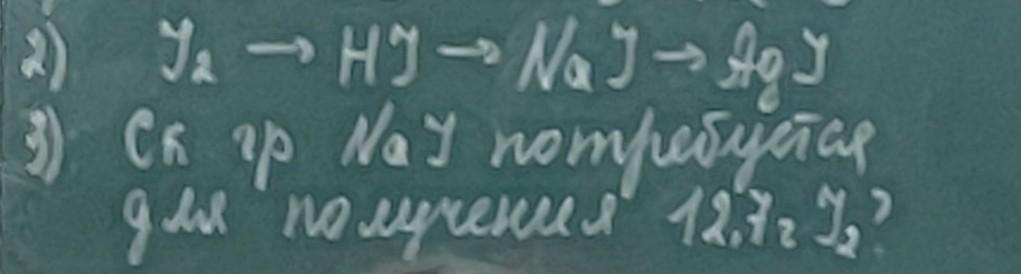 2) J₂ → HJ → NaJ → AgJ
3) Ск гр NaJ потребуется
для получения 12,7г J₂?